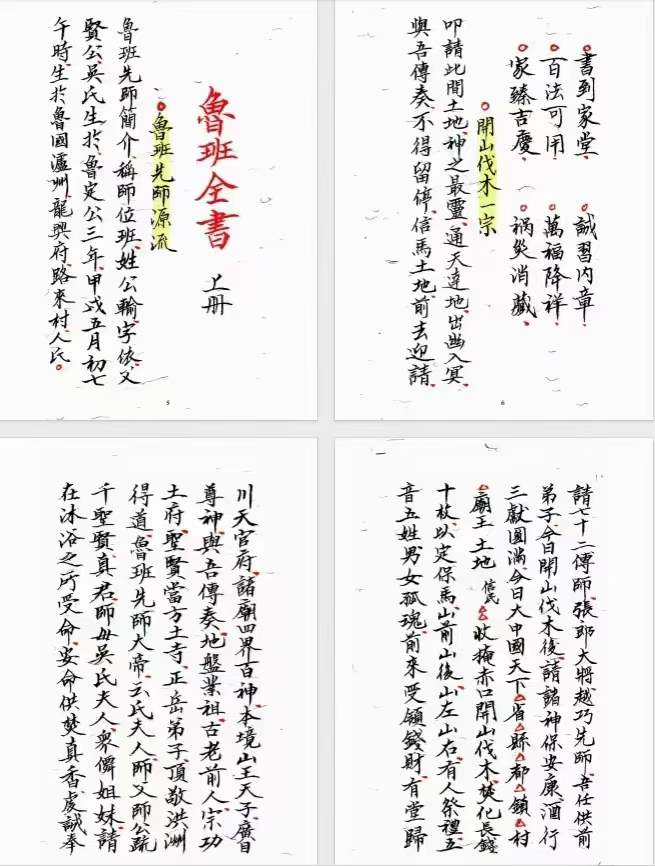 魯班全書 上册
魯班先師源流
魯班先師簡介稱師位班姓公輸字依又
賢公吳氏生於魯定公三年甲戌五月初七
午時生於魯國瀘州龍興府路來村人氏。
5
書到家堂 誠習内章
百法可用 萬福降祥
家臻吉慶 禍災消藏
開山伐木一宗
叩請此間土地神之最靈通天達地出幽入冥
與吾傳奏不得留停信馬土地前去迎請
6
川天官府諸廟四界百神本境山王天子當日
尊神與吾傳奏地盤業祖古老前人宗功
土府聖賢當方土寺正岳弟子頂敬洪洲
得道魯班先師大帝云氏夫人師父師公疏
千聖賢真君師母吳氏夫人衆儕姐妹請
在沐浴之所受命安命供焚真香虔誠奉
請七十二傳師張郎大將越巧先師吾任供前
弟子今日開山伐木後請諸神保安康酒行
三獻圓滿今日大中國天下省縣都鎮村
廟王土地 信民 收掩赤口開山伐木焚化長錢
十杖以定保馬山前山後山左山右有人祭禮五
音五姓男女孤魂前來受領錢財有堂歸